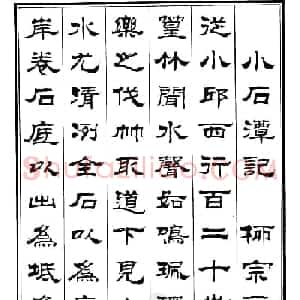 小石潭記 柳宗
從小邱西行百二十步
篁竹聞水聲如鳴珮環
樂之伐竹取道下見
水尤清冽全石以為底
岸卷石底以出為坻為